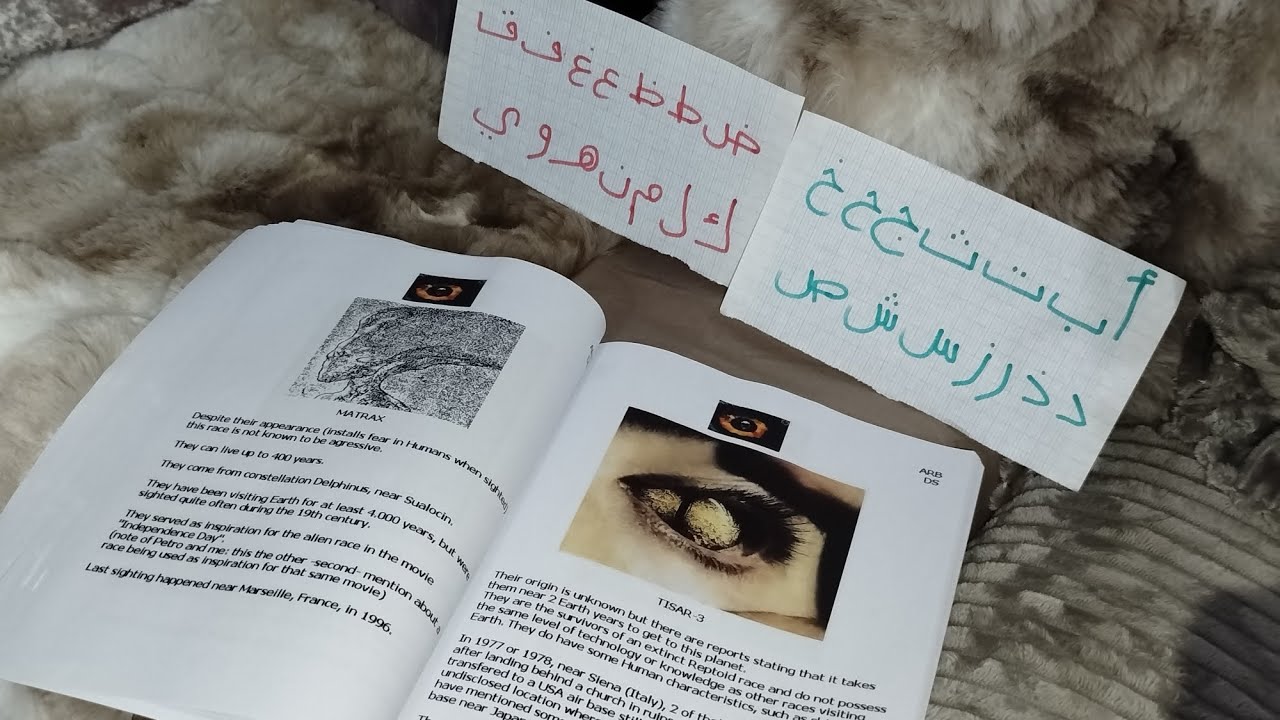 أ ب ت ث ج ح خ
د ذ ر ز س ش ص
ض ط ظ ع غ ف ق
ك ل م ن ه و ي
MATRAX
Despite their appearance (installs fear in Humans when sighted)
this race is not known to be agressive.
They can live up to 400 years.
They come from constellation Delphinus, near Sualocin.
They have been visiting Earth for at least 4.000 years, but were
sighted quite often during the 19th century.
They served as inspiration for the alien race in the movie
"Independence Day".
(note of Petro and me: this the other -second- mention about a
race being used as inspiration for that same movie)
Last sighting happened near Marseille, France, in 1996.
ARB
DS
TISAR-3
Their origin is unknown but there are reports stating that it takes
them near 2 Earth years to get to this planet.
They are the survivors of an extinct Reptoid race and do not possess
the same level of technology or knowledge as other races visiting
Earth. They do have some Human characteristics, such as
In 1977 or 1978, near Siena (Italy), 2 of
after landing behind a church in
transfered to a USA air base
undisclosed location where
have mentioned some
base near